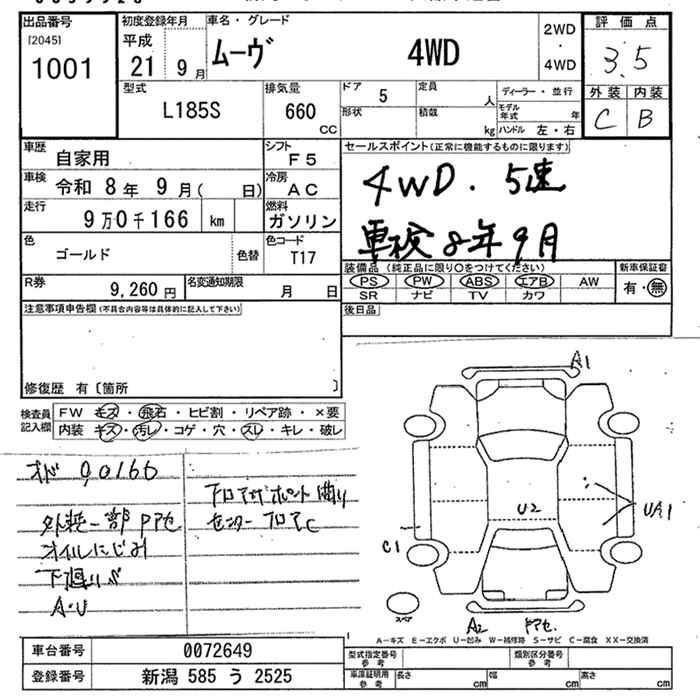 出品番号
[2045]
1001
初度登録年月
平成
21 9月
車名・グレード
ムーヴ 4WD
2WD
・
4WD
評価点
3.5
外装 内装
C B
型式
L185S
排気量
660
CC
ドア 5
定員
人
形状
積載
kg
ディーラー・並行
モデル年式 年
ハンドル 左・右
車歴
自家用
シフト
F5
車検
令和8年9月( 日)
冷房
AC
走行
9万0千166 km
燃料
ガソリン
色
ゴールド
色替
色コード
T17
R券
9,260円
名変通知期限
月 日
セールスポイント(正常に機能するものに限ります)
4WD. 5速
車検8年9月
装備品 (純正品に限り○をつけてください)
PS PW ABS エアB AW
SR ナビ TV カワ
新車保証書
有・無
後日品
注意事項申告欄(不具合内容等は具体的に記入して下さい)
修復歴 有〔箇所 〕
検査員記入欄
FW キズ・飛石・ヒビ割・リペア跡・×要
内装 キズ・汚レ・コゲ・穴・スレ・キレ・破レ
オド 90166
外装一部 Pアセ
オイルにじみ
下廻りS
A・U
フロアサポート曲り
センターフロアC
A1
U2
UA1
C1
スペア
A2
ドアセ.
A－キズ E－エクボ U－凹み W－補修跡 S－サビ C－腐食 XX－交換済
車台番号 0072649
登録番号 新潟 585 う 2525
型式指定番号
参考
類別区分番号
参考
車庫証明用
参考
長さ cm
幅 cm
高さ cm